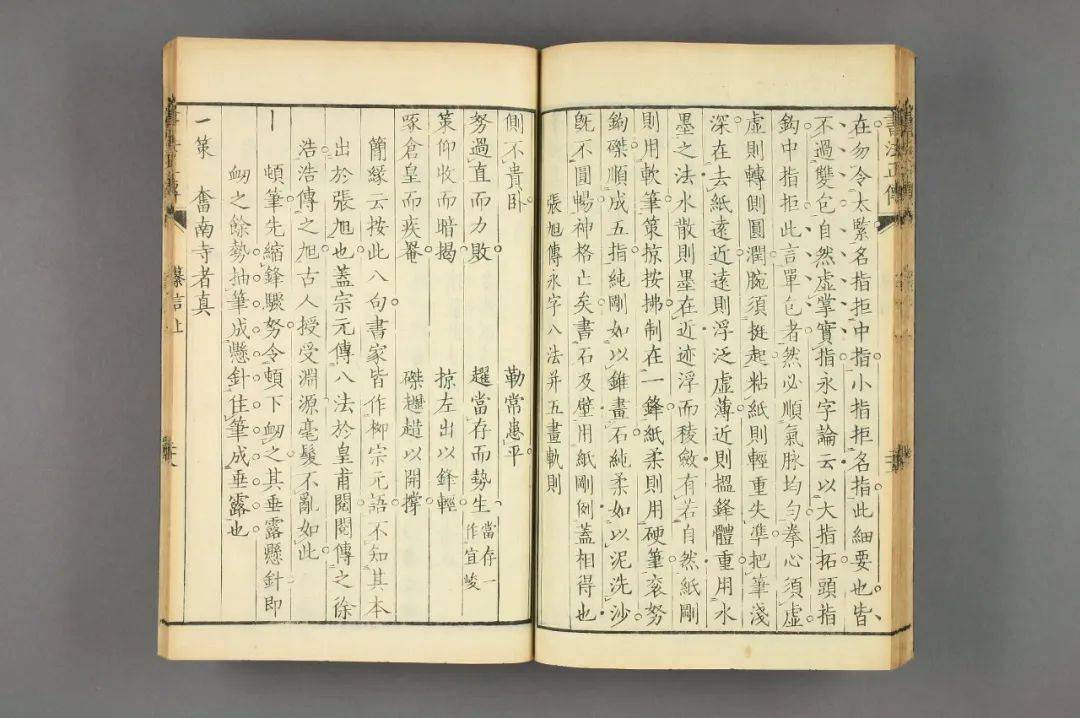 在勿令太緊名指拒中指小指拒名指此細要也皆
不過雙包自然虛掌實指永字論云以大指拓頭指
鈎中指拒此言單包者然必順氣脉均勻拳心須虛
虛則轉側圓潤腕須挺起粘紙則輕重失準把筆淺
深在去紙遠近遠則浮泛虛薄近則搵鋒體重用水
墨之法水散則墨在近迹浮而稜斂有若自然紙剛
則用軟筆策掠按拂制在一鋒紙柔則用硬筆袞努
鈎磔順成五指純剛如以錐畫石純柔如以泥洗沙
旣不圓暢神格亡矣書石及壁用紙剛例蓋相得也
張旭傳永字八法并五畫軌則
側不貴卧 勒常患平
努過直而力敗 趯當存而勢生 當存一作宜峻
策仰收而暗揭 掠左出以鋒輕
啄倉皇而疾罨 磔趯趞以開撑
簡緣云按此八句書家皆作柳宗元語不知其本
出於張旭也蓋宗元傳八法於皇甫閱閱傳之徐
浩浩傳之旭古人授受淵源毫髮不亂如此
丨 頓筆先縮鋒驟努令頓下衂之其垂露懸針即
衂之餘勢抽筆成懸針住筆成垂露也
一策 奮南寺者真
書法正傳
纂言上